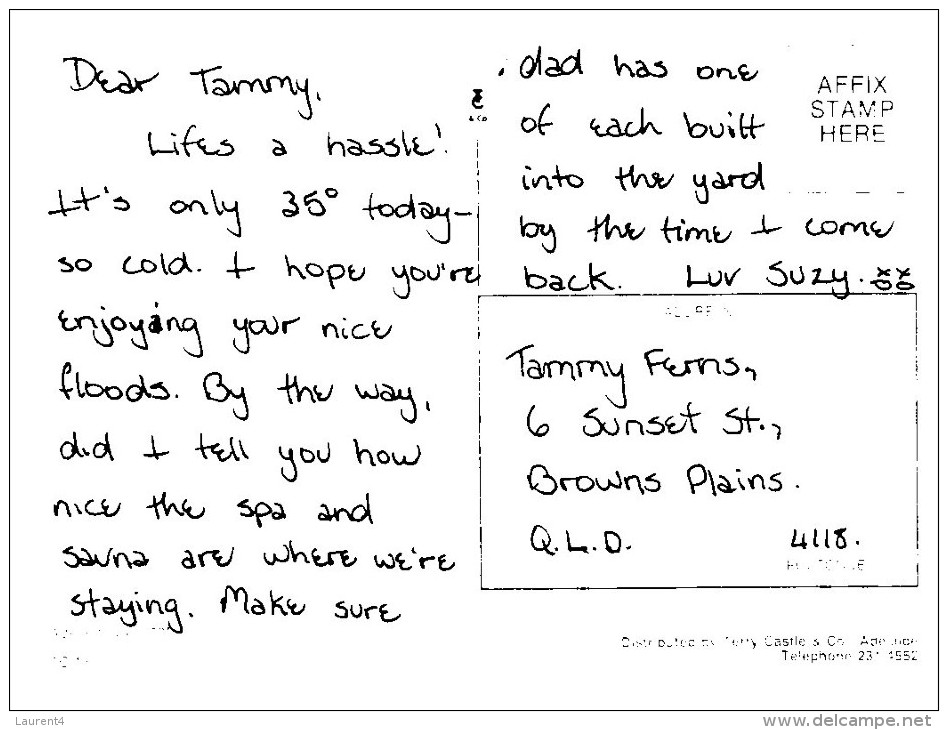 Dear Tammy,
Lifes a hassle!
It's only 35° today-
so cold. I hope you're
enjoying your nice
floods. By the way,
did I tell you how
nice the spa and
sauna are where we're
staying. Make sure
dad has one
of each built
into the yard
by the time I come
back. Luv Suzy. xx
oo
& Co
AFFIX
STAMP
HERE
Tammy Ferns,
6 Sunset St.,
Browns Plains.
Q.L.D. 4118.
Distributed by Terry Castle & Co. Adelaide
Telephone 231 4552
Laurent4
www.delcampe.net